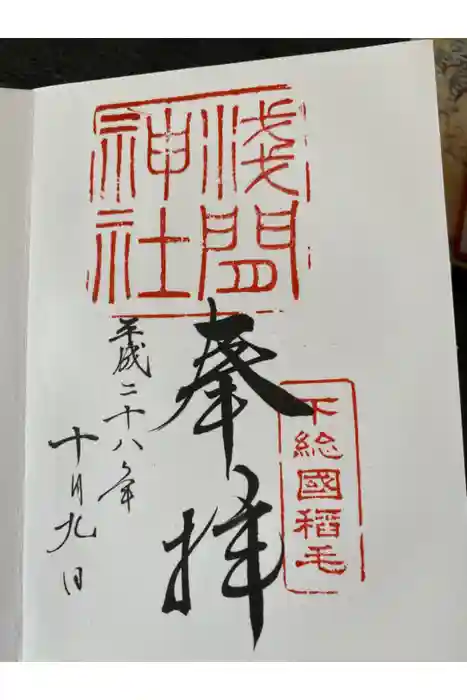 浅間
神社
奉拝
下総國稲毛
平成二十八年
十月九日